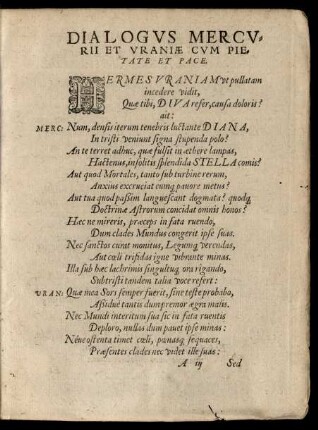 DIALOGVS MERCV-
RII ET VRANIÆ CVM PIE,
TATE ET PACE.
HERMES VRANIAM vt pullatam
incedere vidit,
Quæ tibi, DIVA refer, causa doloris?
ait:
MERC: Num, densis iterum tenebris luctante DIANA,
In tristi veniunt signa stupenda polo?
An te terret adhuc, quæ fulsit in æthere lampas,
Hactenus, insolitis splendida STELLA comis?
Aut quod Mortales, tanto sub turbine rerum,
Anxius excruciat cumq; pauore metus?
Aut tua quod passim languescant dogmata? quodq;
Doctrinæ Astrorum concidat omnis honos?
Hæc ne mireris, præceps in fata ruendo,
Dum clades Mundus congerit ipse suas.
Nec sanctos curat monitus, Legumq; verendas,
Aut cœli trifidas igne vibrante minas.
Illa sub hæc lachrimis singultuq; ora rigando,
Subtristi tandem talia voce refert:
VRAN: Quæ mea Sors semper fuerit, sine teste probabo,
Assiduè tantis dum premor ægra malis.
Nec Mundi interitum sua sic in fata ruentis
Deploro, nullas dum pauet ipse minas:
Néue ostenta timet cœli, pœnasq; sequaces,
Præsentes clades nec videt ille suas:
A iij Sed